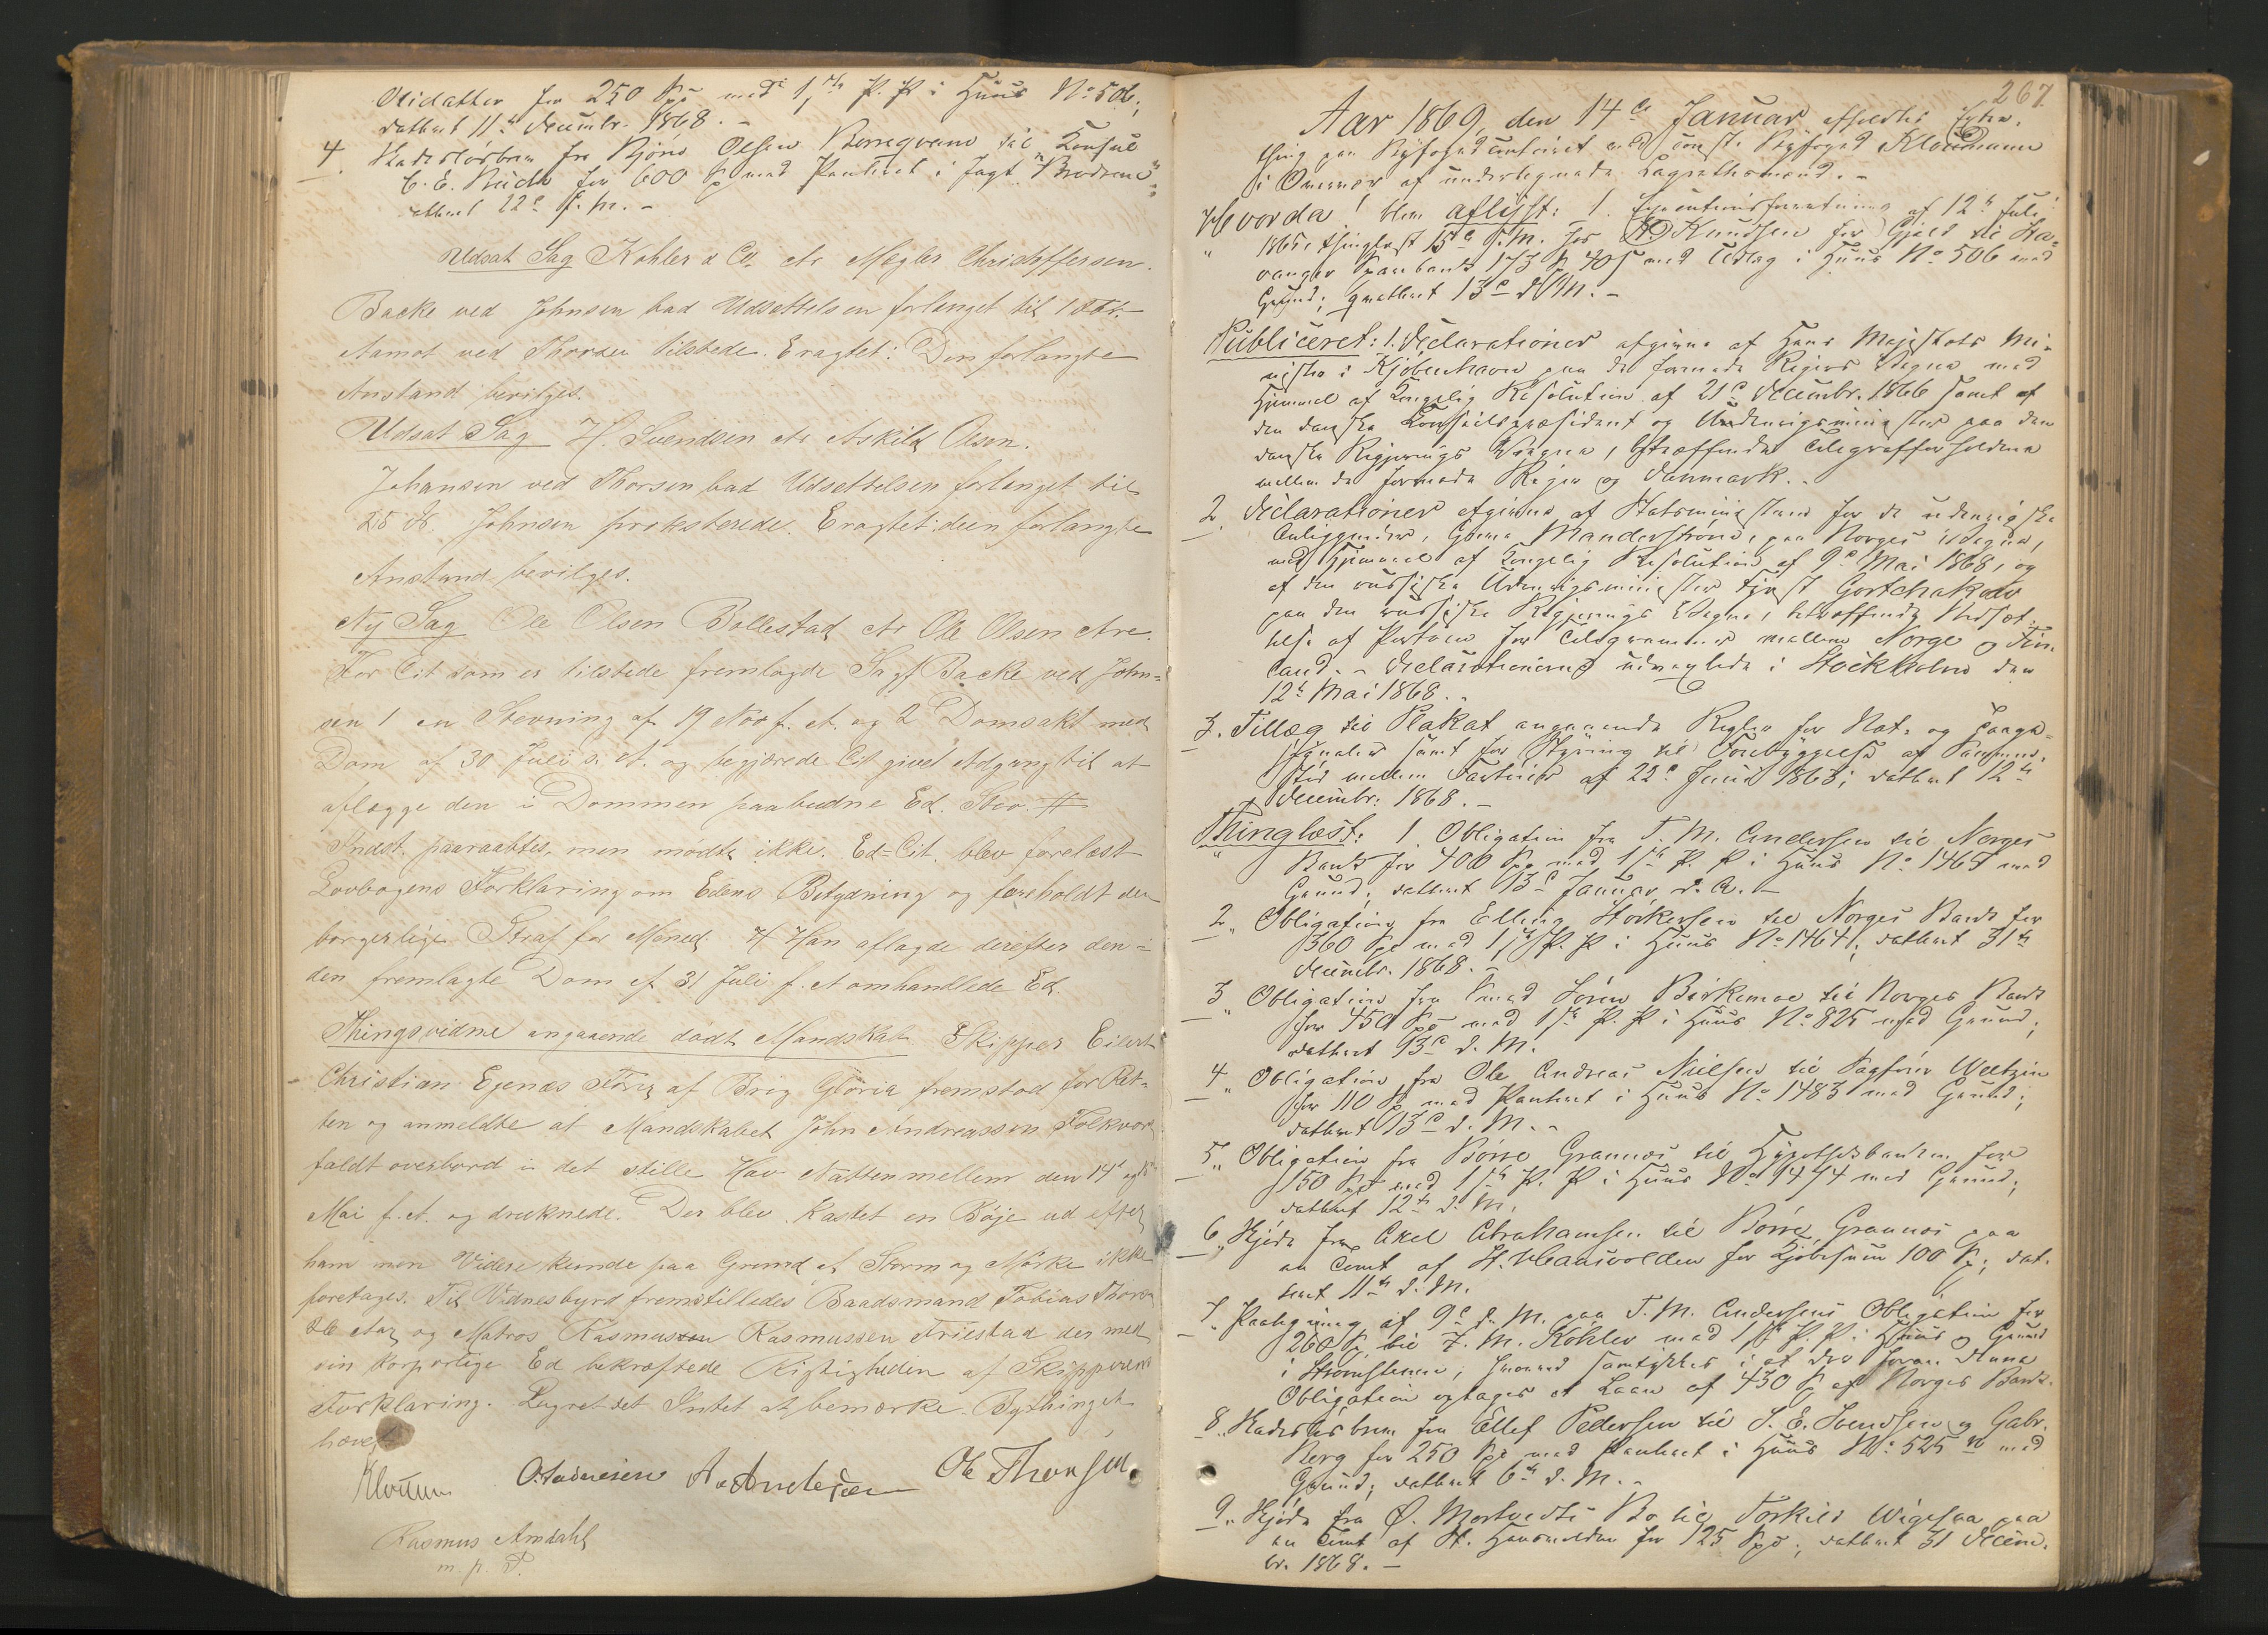 Olidatter for 250 Spd med 1ste P. P. i Huus No 506;
datteret 11te Decembr. 1868. -
4. Skadesløsbrev fra Bjørn Olsen til Consul
C. E. Buch for 600 Sp med Panteret i Jagt "Brødrene";
datteret 22de f. M. -
Udsat Sag Kohler & Co. Ar Megler Christoffersen.
Backe ved Johnsen bad Udsettelsen forlanget til 1 Febr.
Aamot ved Thorsen tilstede. Eragtet: Den forlangte
Anstand bevilges.
Udsat Sag H. Svendsen Ar Askild Olsen.
Johansen ved Thorsen bad Udsettelsen forlanget til
28 Johnsen protesterede. Eragtet: den forlangte
Anstand bevilges.
Ny Sag Ole Olsen Bollestad Ar Ole Olsen Are.
For Cit som er tilstede fremlagde Sagf Backe ved John-
sen 1 en Stevning af 19 Nov f. A. og 2 Domsakt med
Dom af 30 Juli s. A. og begjærede Cit givet Adgang til at
aflægge den i Dommen paabudne Ed. Stev. #
Indst. paaraabtes, men mødte ikke. Ed-Cit. blev forelæst
Lovbogens Forklaring om Edens Betydning og foreholdt den
borgerlige Straf for Mened. # Han aflagde derefter den i
den fremlagte Dom af 31 Juli f. A omhandlede Ed.
Thingsvidne angaaende dødt Mandskab. Skipper Eilert
Christian Egenæs Fører af Brig Gloria fremstod for Ret-
ten og anmeldte at Mandskabet John Andreassen Folkvor
faldt overbord i det stille Hav Natten mellem den 14de og 15
Mai f. A. og druknede. Der blev kastet en Bøje ud efter
ham men Videre kunde paa Grund af Storm og Mørke ikke
foretages. Til Vidnesbyrd fremstilledes Baadsmand Tobias Thorsen
26 Aar og Matros Rasmus Rasmussen Friestad der med
sin korporlige Ed bekræftede Rigtigheden af Skipperens
Forklaring. Lagret det Intet at bemærke. Bythinget
hævet
Kloumann A. Andersen Ole Thorsen.
Rasmus Amdahl
m. p. P.
267.
Aar 1869, den 14de Januar afholdtes Extra-
thing paa Byfogedcontoiret ved const. Byfoged Kloumann
i Overvær af undertegnede Lagrettesmænd. -
Hvorda! blev aflyst: 1. Executionsforretning af 12te Juli
1865, thinglæst 13de s. M. hos Knudsen for Gjæld til Sta-
vanger Sparebank 173 Sp 40 s med Udlæg i Huus No 506 med
Grund; qvitteret 13de d. M. -
Publiceret: 1. Declarationer afgivne af Hans Majestæts Mi-
nister i Kjøbenhavn paa de forenede Rigers Vegne med
Hjemmel af Kongelig Resolution af 21de Decembr. 1866 samt af
den danske Conseilspræsident og Udenrigsminister paa den
danske Regjerings Vegne, betræffende Telegrafforholdene
mellem de forenede Riger og Danmark. -
2. Declarationer afgivne af Statsministeren for de udenrigske
Anliggender, Greve Manderstrøm, paa Norges Vegne,
med Hjemmel af Kongelig Resolution af 9de Mai 1868, og
af den russiske Udenrigsminister Fyrst Gortchakow
paa den russiske Regjerings Vegne, betræffende Nedsæt-
telse af Portoen for Telegrammer mellem Norge og Fin-
land. - Declarationerne udvexlede i Stockholm den
12te Mai 1868. -
3. Tillæg til Plakat angaaende Regler for Nat- og Taage-
signaler samt for Styring til Forebyggelse af Sammen-
stød mellem Fartøier af 22de Juni 1863; datteret 12te
Decembr. 1868. -
Thinglæst: 1. Obligation fra T. M. Andersen til Norges
Bank for 400 Spd med 1ste P. P. i Huus No 1463 med
Grund; datteret 13de Januar d. A. -
2. Obligation fra Elling Størkersen til Norges Bank for
360 Spd med 1ste P. P. i Huus No 1464; datteret 31te
Decembr. 1868. -
3. Obligation fra Smed Søren Birkemoe til Norges Bank
for 450 Spd med 1ste P. P. i Huus No 825 med Grund;
datteret 13de d. M.
4. Obligation fra Ole Andreas Nielsen til Sagfører Weltzin
for 110 Sp med Panteret i Huus No 1483 med Grund;
datteret 13de d. M. -
5. Obligation fra Børre Grannes til Hypothekbanken for
150 Spd med 1ste P. P. i Huus No 1474 med Grund;
datteret 12te d. M.
6. Skjøde fra Axel Abrahamsen til Børre Grannes paa
en Tomt af St. Hansvolden for Kjøbesum 100 Sp; dat-
teret 11te d. M.
7. Paategning af 9de d. M. paa T. M. Andersens Obligation for
260 Sp til F. M. Kohler med 1ste P. P. i Huus og Grund
i Strømstenen, hvorved samtykkes i at der foran denne
Obligation optages et Laan af 430 Sp af Norges Bank.
8. Skadesløsbrev fra Ellef Pedersen til S. E. Svendsen og Gabr.
Berg for 250 Spd med Panteret i Huus No 525 b med
Grund; datteret 6te d. M. -
9. Skjøde fra Ø. Mortvedts Bo til Torkild Wigesaa paa
en Tomt af St. Hansvolden for 125 Spd; datteret 31 Decem-
br. 1868. -